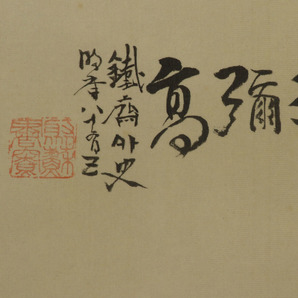 彌高
鐵齋外史
時年八十有五